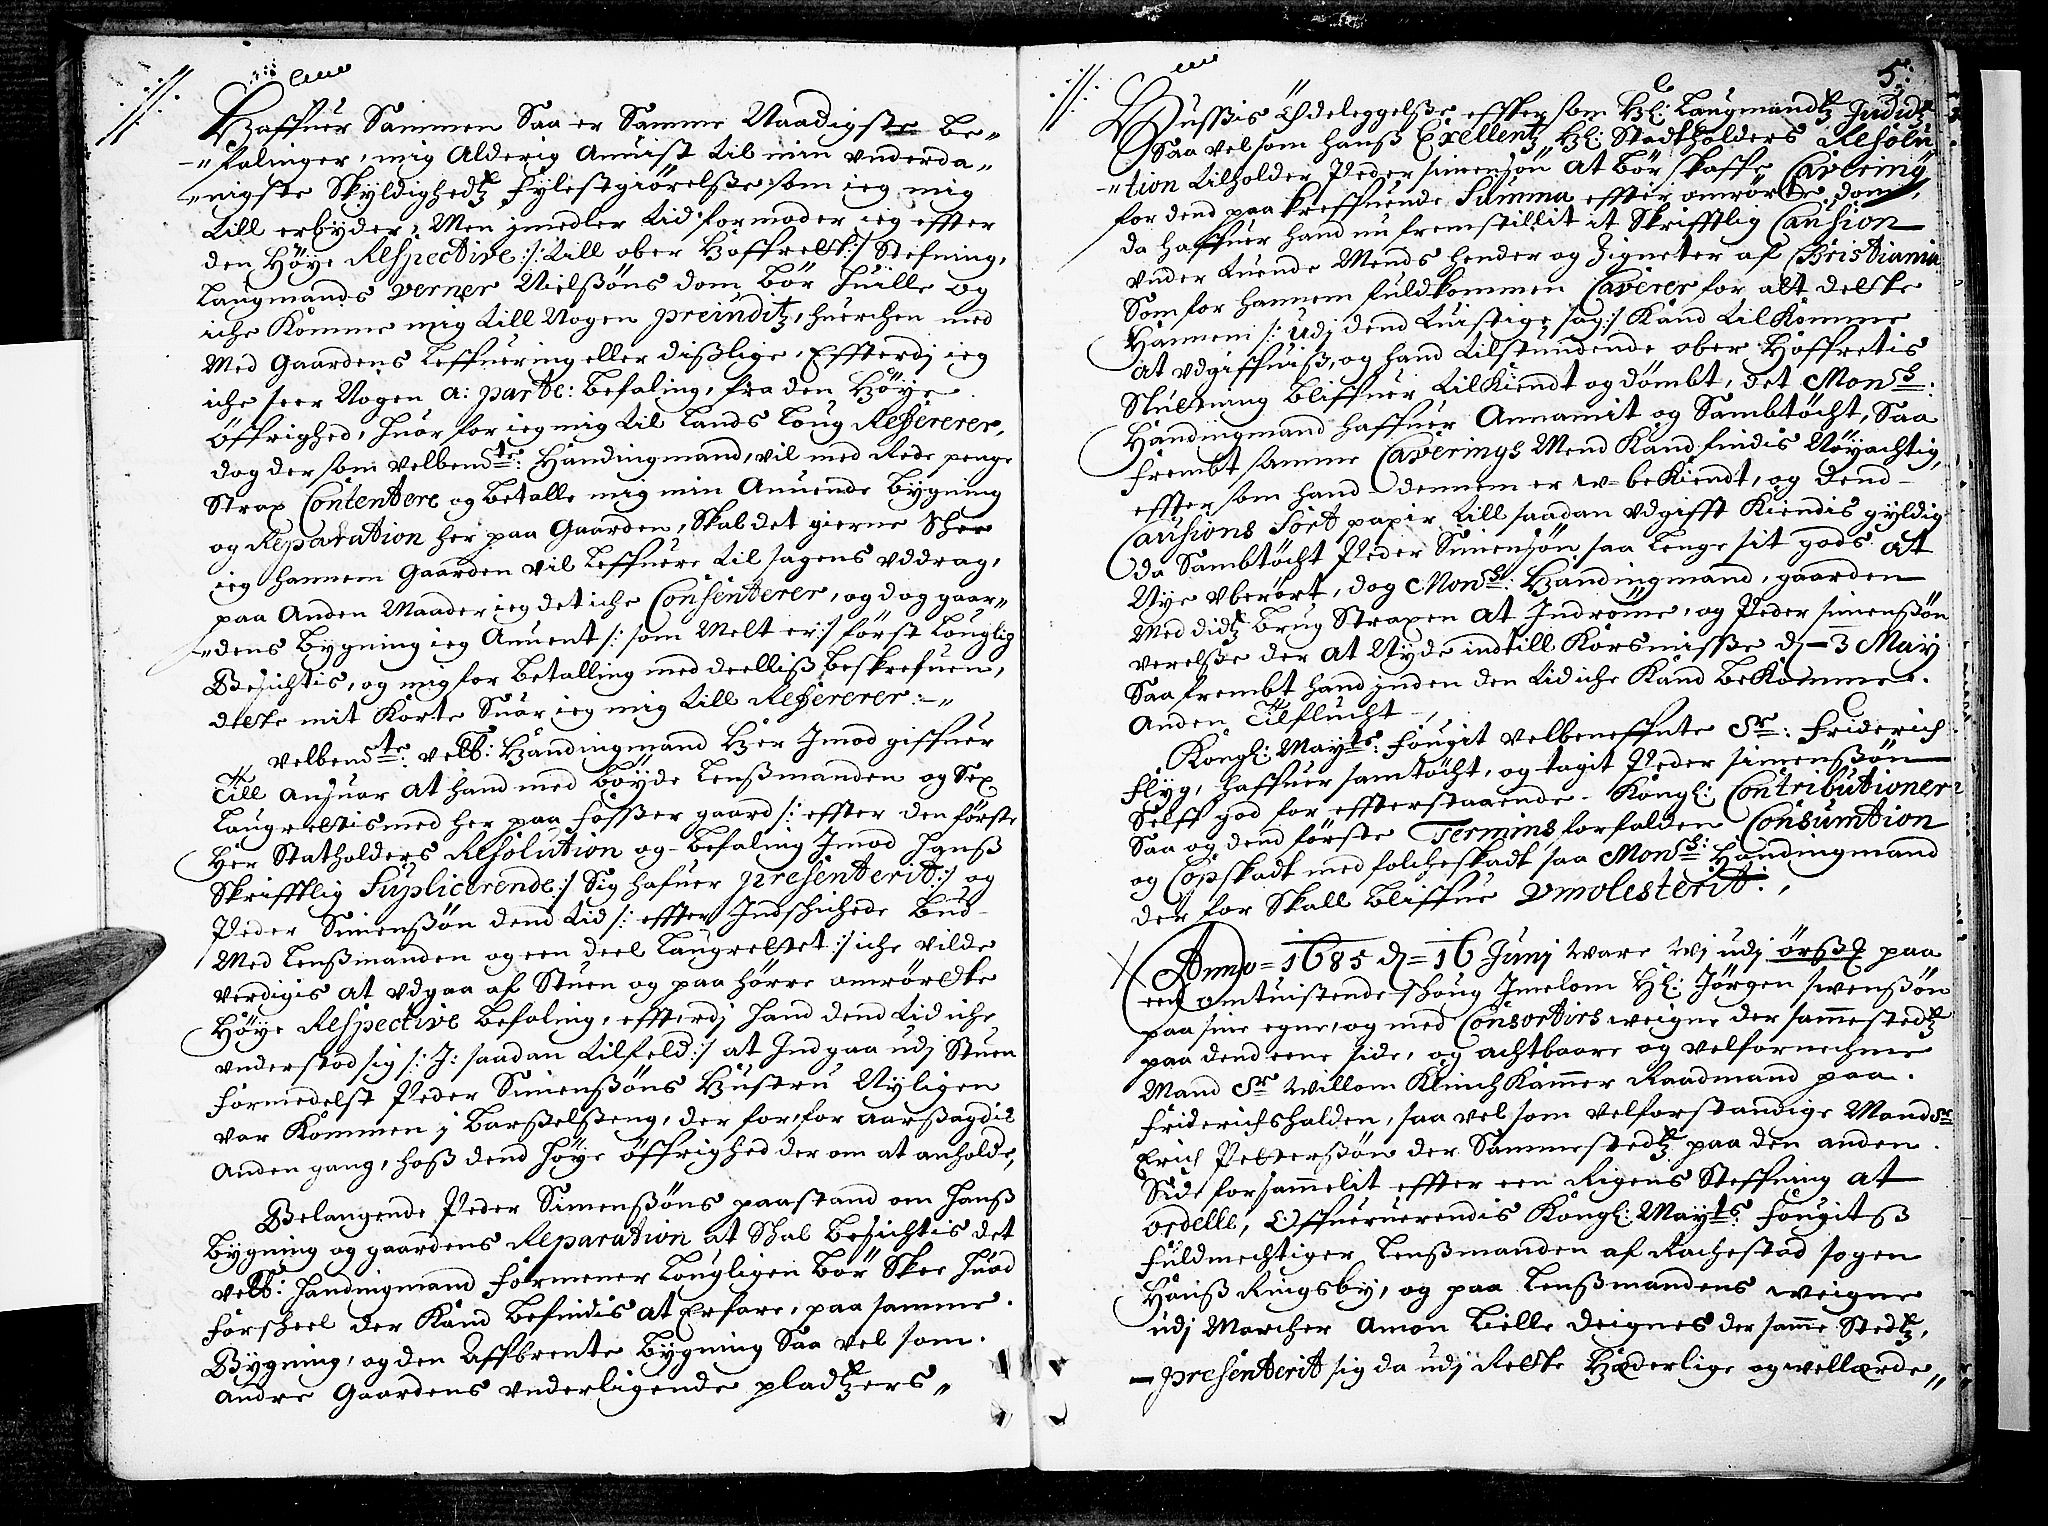 Haffuer Sammen Saa er Samme Naadigste Be„
„falinger, mig Alderig Anuist til min vnderda„
„nigste Skyldighedtz fylestgiörelsse som ieg mig
till erbyder, Men jmedler tid formoder ieg effter
den Höye Respective :/: till ober Hoffrett :/ Stefning,
Laugmands Verner Nielssöns dom bör huille og
iche Komme mig till Nogen preiuditz, huerchen med
Med Gaardens leffuering eller disslige, Effterdj ieg
iche seer Nogen a: parte: befaling, fra den Höye
Öffrighed, huor for ieg mig til lands loug Refererer,
dog der som velbendte: Handingmand, vil med Rede penge
Strax Contentere og betalle mig min Anuende bygning
og Reparation her paa Gaarden, Skal det gierne Skee
ieg hannem Gaarden vil leffuere til sagens vddrag,
paa Anden Maader ieg det iche Consenterer, og dog gaar„
„dens bygning ieg Anuent /: som Melt er :/ först louglig
Besichtis, og mig for betalling med deelliss beskrefuen,
dette mit Korte Suar ieg mig till Refererer :-„
Velbendte: velb: Handingmand Her Jmod giffuer
Till ansuar at hand med böyde Lenssmanden og Sex
Laugrettismed her paa fosser gaard /: effter den förste
Her Statholders Resolution og befaling Jmod hanss
Skrifftlig Suplicerende :/ Sig hafuer presenterit :/ og
Peder Simenssön dend tid /: effter Jndschichede bud
Med Lenssmanden og een deel Laugrettet :/ iche vilde
verdigis at vdgaa af Stuen og paa hörre omrörte
Höye Respective befaling, effterdj hand dend tid iche
vnderstod sig /: J: saadan tilfeld :/ at Jndgaa udj Stuen
formedelst Peder Simenssöns Hustru Nyligen
var Kommen j barsselsseng, der for, for aarssagdis
Anden gang, hoss dend höye öffrighed der om at anholde,
Belangende Peder Simenssöns paastand om hanss
bygning og gaardens Reparation at Skal besichtis det
velb: Handingmand formener lougligen bör Skee huad
forskeel der Kand befindis at Erfare, paa samme
Bygning, og den Affbrente bygning Saa vel som
andre Gaardens vnderligende pladtzers„
5:
Hussis Ödeleggelsse effter som Hl: Laugmandtz Judidtz
Saa vel som hanss Exellentz Hl: Stadtholders Resolu
„tion tilholder Peder simensön at bör skaffe Cavering
for dend paa kreffuende Summa effter omrörte dom,
da haffuer hand nu fremstillit it Skrifftlig Caution
vnder tuende Mends hender og Zigneter af Christiania
Som for hannem fuldkommen Caverer for alt dette
Hannem /: udj dend tuistige sag :/ Kand tilkomme
at vdgiffuiss, og hand tilstundende ober Hoffretis
Slutning bliffuer tilkiendt og dömbt, det Monsr:
Handingmand haffuer Annamit og Sambtöcht, Saa
frembt samme Caverings Mend Kand findis Nöyachtig,
effter som hand dennem er w-bekiendt, og dend
Cautions Sort papir till saadan vdgifft Kiendis gyldig
da Sambtöcht Peder Simensön saa lenge sit gods at
Nye vberört, dog Monsr: Handingmand, gaarden
Med didtz brug Straxen at Jndröme, og Peder simenssön
verelsse der at Nyde indtill Korsmisse d. 3 May
Saa frembt hand jnden den tid iche Kand bekomme
Anden Tilflucht
Kongl: Mayts: fougit velbeneffnte Sr: Friderich
flyg, haffuer samtöcht, og tagit Peder simenssön
Selff god for effterstaaende Kongl: Contributioner
Saa og dend förste Termins forfalden Consumtion
og Copskadt med folcheskadt saa Monsr: Handingmand
der for Skall bliffue vmolesterit.,
Anno 1685 d. 16 Junj ware Wj udj örssz paa
eet omtuistende skoug Jmelom Hl: Jörgen swenssön
paa sine egne, og med Consortirs weigne der sammestedtz
paa dend eene side, og achtbaare og velfornehme
Mand Sr Willom Klinchkammer Raadmand paa
Friderichshalden, saa vel som velforstandige Mand Sr
Erich Petterssön der Sammestedtz paa den anden
Side forsammelit effter een Rigens Steffning at
ordelle, Offueruerendis Kongl: Mayts: fougitss
fuldmechtiger lenssmanden af Rachestad sogen
Hanss Ringsby, og paa lenssmandens weigne
udj Marcher Amon lielle deignes der samme Stedtz,
presenterit sig da udj Rette Hæderlige og wellærde„